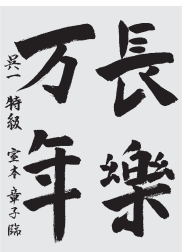 長樂
万年
呉一 特級 室本章子臨